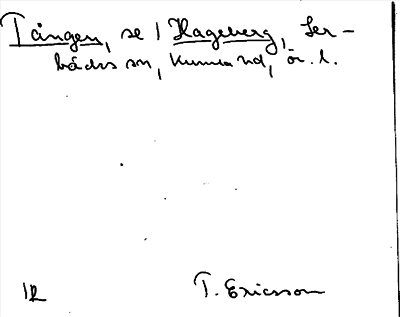 Tången, se / Hageberg, Ler-
bäcks sn, Kumla hd, ör. l.
12 T. Ericsson